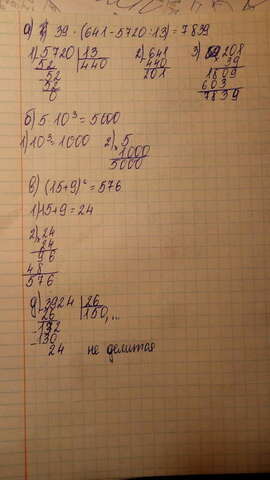 а) 39 · (641 - 5720 : 13) = 7839
1) 5720 | 13
52 440
52
52
0
2) 641
440
201
3) 208
39
1809
603
7839
б) 5 · 10³ = 5000
1) 10³ = 1000 2) 5
1000
5000
в) (15+9)² = 576
1) 15+9 = 24
2) 24
24
96
48
576
д) 3924 | 26
26 150, ...
132
130
24 не делится